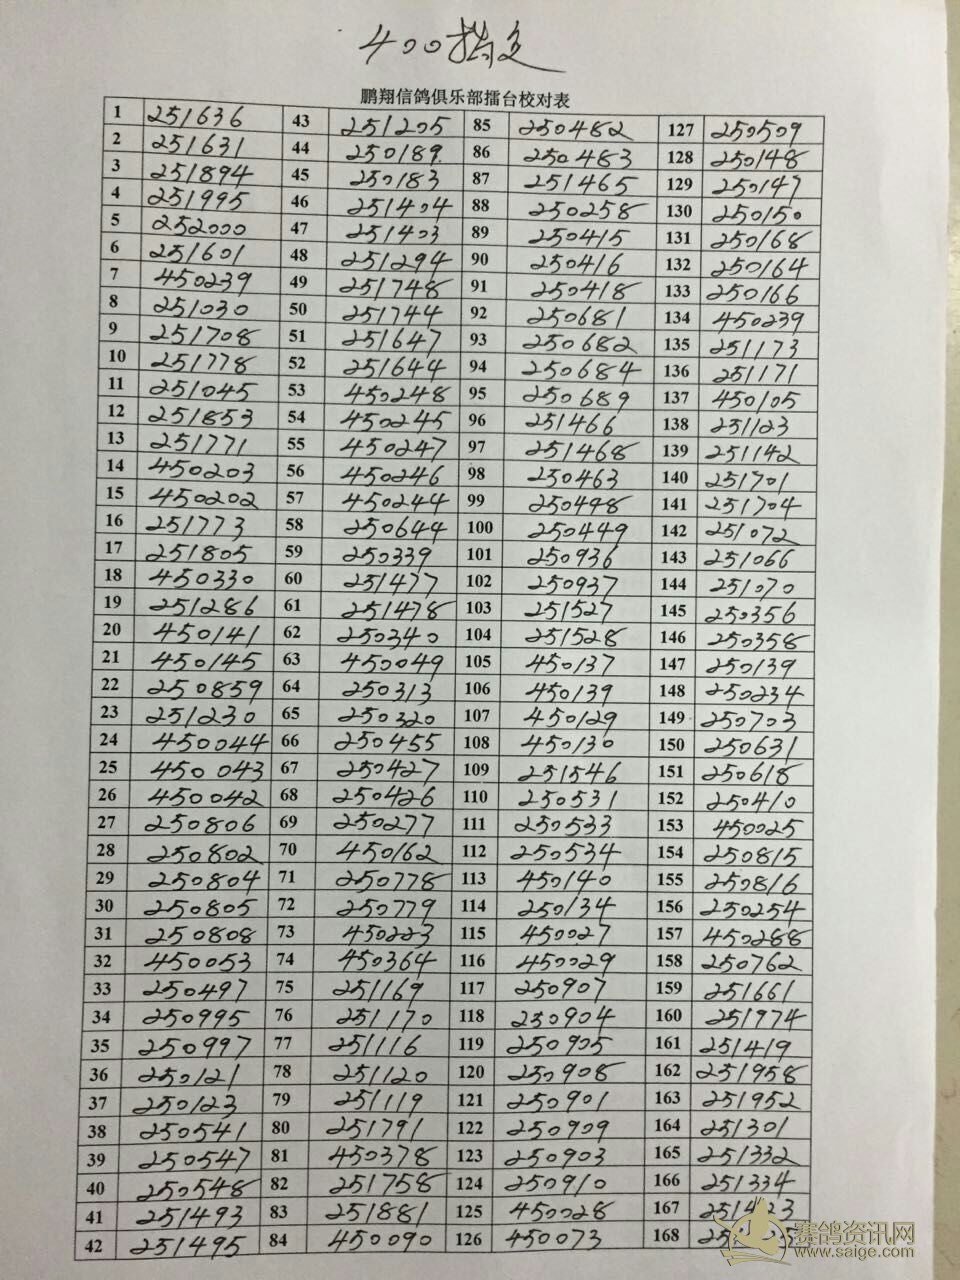 400指定
鹏翔信鸽俱乐部擂台校对表
1 251636 43 251205 85 250482 127 250509
2 251631 44 250189 86 250483 128 250148
3 251894 45 250183 87 251465 129 250147
4 251995 46 251404 88 250258 130 250150
5 252000 47 251403 89 250415 131 250168
6 251601 48 251294 90 250416 132 250164
7 450239 49 251748 91 250418 133 250166
8 251030 50 251744 92 250681 134 450239
9 251708 51 251647 93 250682 135 251173
10 251778 52 251644 94 250684 136 251171
11 251045 53 450248 95 250689 137 450105
12 251853 54 450245 96 251466 138 251123
13 251771 55 450247 97 251468 139 251142
14 450203 56 450246 98 250463 140 251701
15 450202 57 450244 99 250498 141 251704
16 251773 58 250644 100 250449 142 251072
17 251805 59 250339 101 250936 143 251066
18 450330 60 251477 102 250937 144 251070
19 251286 61 251478 103 251527 145 250356
20 450141 62 250340 104 251528 146 250358
21 450145 63 450049 105 450137 147 250139
22 250859 64 250313 106 450139 148 250234
23 251230 65 250320 107 450129 149 250703
24 450044 66 250455 108 450130 150 250631
25 450043 67 250427 109 251546 151 250618
26 450042 68 250426 110 250531 152 250410
27 250806 69 250277 111 250533 153 450025
28 250802 70 450162 112 250534 154 250815
29 250804 71 250778 113 450140 155 250816
30 250805 72 250779 114 250134 156 250254
31 250808 73 450223 115 450027 157 450288
32 450053 74 450364 116 450029 158 250762
33 250497 75 251169 117 250907 159 251661
34 250995 76 251170 118 250904 160 251974
35 250997 77 251116 119 250905 161 251419
36 250121 78 251120 120 250908 162 251958
37 250123 79 251119 121 250901 163 251952
38 250541 80 251791 122 250909 164 251301
39 250547 81 450378 123 250903 165 251332
40 250548 82 251758 124 250910 166 251334
41 251493 83 251881 125 450028 167
42 251495 84 450090 126 450073 168
赛鸽资讯网
www.saige.com